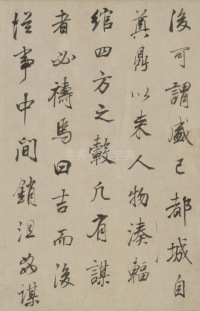 後可謂盛已都城自
奠鼎以来人物湊輻
綰四方之轂凡有謀
者必禱焉曰吉而後
從事中间銷沮敚謀